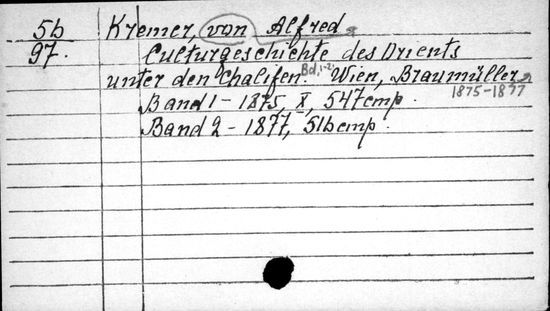 5b Kremer, von Alfred
97. Culturgeschichte des Orients
unter den Chalifen. Bd. 1-2. Wien, Braumüller,
1875-1877
Band 1 - 1875, X, 547 стр.
Band 2 - 1877, 516 стр.